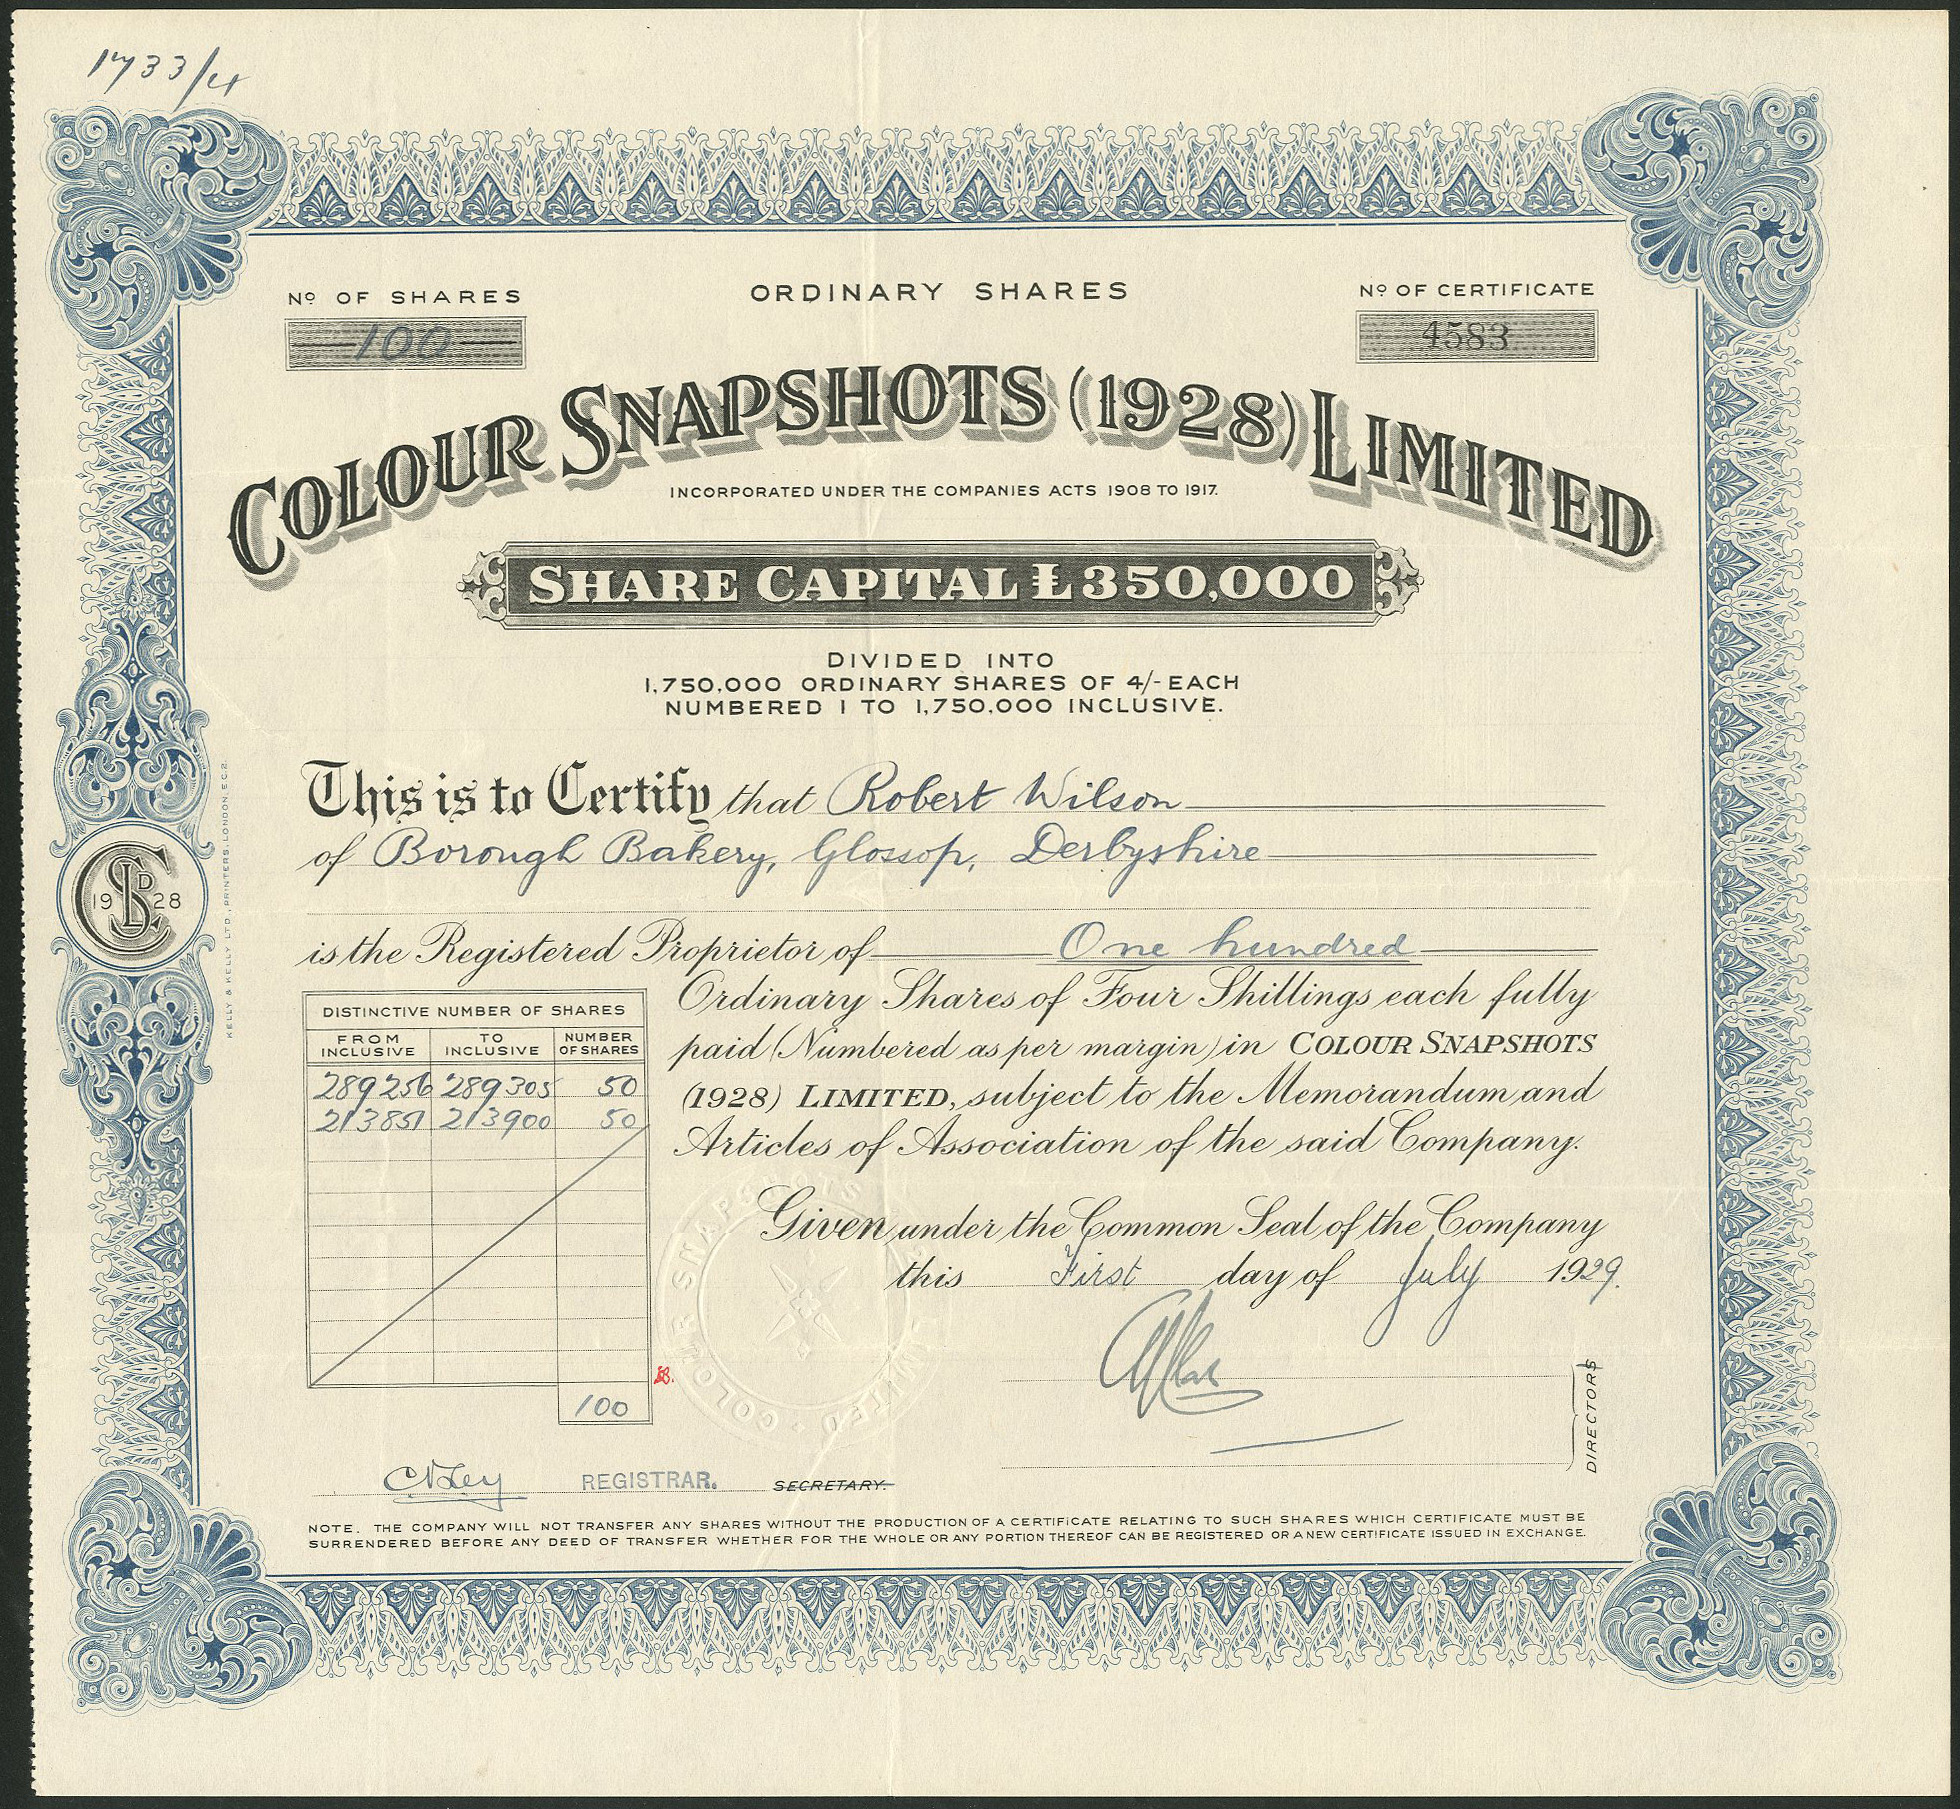 1733/4
Nº OF SHARES
100
ORDINARY SHARES
Nº OF CERTIFICATE
4583
COLOUR SNAPSHOTS (1928) LIMITED
INCORPORATED UNDER THE COMPANIES ACTS 1908 TO 1917.
SHARE CAPITAL £350,000
DIVIDED INTO
1,750,000 ORDINARY SHARES OF 4/- EACH
NUMBERED 1 TO 1,750,000 INCLUSIVE.
This is to Certify that Robert Wilson
of Borough Bakery, Glossop, Derbyshire
is the Registered Proprietor of One hundred
Ordinary Shares of Four Shillings each fully
paid (Numbered as per margin) in COLOUR SNAPSHOTS
(1928) LIMITED, subject to the Memorandum and
Articles of Association of the said Company.
DISTINCTIVE NUMBER OF SHARES
FROM INCLUSIVE TO INCLUSIVE NUMBER OF SHARES
289256 289305 50
213851 213900 50
100
Given under the Common Seal of the Company
this First day of July 1929.
DIRECTORS
REGISTRAR. SECRETARY.
NOTE. THE COMPANY WILL NOT TRANSFER ANY SHARES WITHOUT THE PRODUCTION OF A CERTIFICATE RELATING TO SUCH SHARES WHICH CERTIFICATE MUST BE
SURRENDERED BEFORE ANY DEED OF TRANSFER WHETHER FOR THE WHOLE OR ANY PORTION THEREOF CAN BE REGISTERED OR A NEW CERTIFICATE ISSUED IN EXCHANGE.
KELLY & KELLY LTD., PRINTERS, LONDON, E.C.2.
19 CSLD 28
COLOUR SNAPSHOTS LIMITED